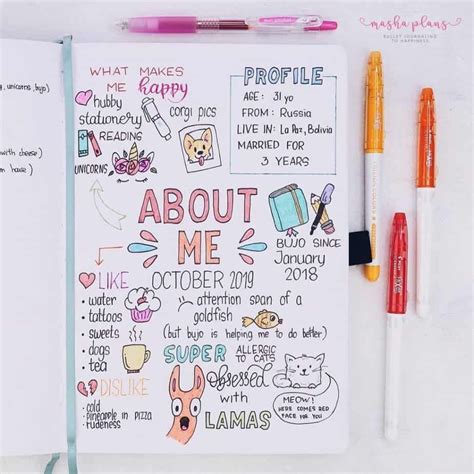 masha plans
BULLET JOURNALING
TO HAPPINESS
WHAT MAKES
ME happy
hubby
stationery
READING
UNICORNS
corgi pics
PROFILE
AGE: 31 yo
FROM: Russia
LIVE IN: La Paz, Bolivia
MARRIED FOR
3 YEARS
, unicorns, bujo)
with cheese)
m house)
ABOUT
ME
BUJO SINCE
January
2018
LIKE
• water
• tattoos
• sweets
• dogs
• tea
OCTOBER 2019
attention span of a
goldfish
(but bujo is helping me to do better)
SUPER ALLERGIC
TO CATS
MEOW!
HERE COMES RED
FACE FOR YOU
DISLIKE
• cold
• pineapple in pizza
• rudeness
obsessed
with
LAMAS